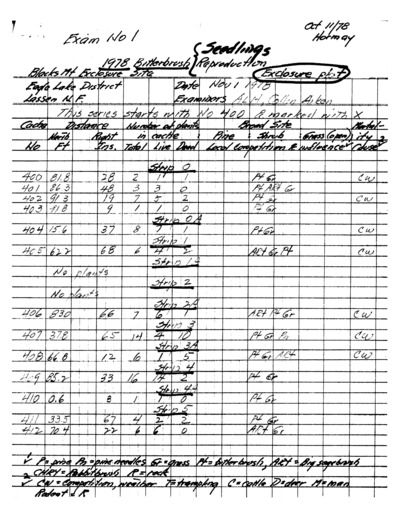 Oct 11/78
Exam No 1
Hormay
Seedlings
1978 Bitterbrush Reproduction
Blacks Mt Exclosure Site
Exclosure plot
Eagle Lake District Date Nov 1 1978
Lassen N.F. Examiners
This series starts with No 400 & marked with X
Cache Distance Number of plants Broad Site Mortality
North East in cache Pine Shrub Grass (open)
No Ft Ins. Total Live Dead Local Competition & influence Cause
Strip 0
400 81.8 28 2 Pt Gr CW
401 86.3 48 3 3 0 Pt ARt Gr
402 91.3 19 7 5 2 Pt Gr CW
403 91.8 9 1 1 0 Gr
Strip 0A
404 15.6 37 8 Pt Gr CW
Strip 1
405 62.2 68 6 4 2 ARt Gr Pt CW
Strip 1A
No plants
Strip 2
No plants
Strip 2A
406 83.0 66 7 6 1 ARt Pt Gr CW
Strip 3
407 37.8 65 14 4 10 Pt Gr Pn CW
Strip 3A
408 66.8 12 6 1 5 Pt Gr ARt CW
Strip 4
409 85.2 33 16 14 2 Pt Gr
Strip 4A
410 0.6 8 1 1 0 Pt Gr
Strip 5
411 33.5 67 4 2 2 Pt Gr
412 70.4 22 6 6 0 ARt Gr
1/ P = pine Pn = pine needles Gr = grass Pt = bitterbrush, ARt = Big sagebrush
CHRY = Rabbitbrush R = rock
2/ CW = Competition, weather T = trampling C = cattle D = deer M = man
Rodent = R